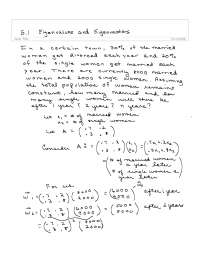 5.1 Eigenvalues and Eigenvectors
In a certain town, 30% of the married
women get divorced each year and 20%
of the single women get married each
year. There are currently 8000 married
women and 2000 single women. Assuming
the total population of women remains
constant, how many married and how
many single women will there be
after 1 year? 2 years? n years?
Let x₁ = # of married women
x₂ = # of single women
Let A = (.7 .2
.3 .8)
Consider A x̄ = (.7 .2
.3 .8) (x₁
x₂) = (.7x₁+.2x₂
.3x₁+.8x₂)
(# of married women
a year later
# of single women a
year later)
For us
w̄₁ = (.7 .2
.3 .8) (8000
2000) = (6000
4000) after 1 year
w̄₂ = (.7 .2
.3 .8) (6000
4000) = (5000
5000) after 2 years
= (.7 .2
.3 .8)² (8000
2000)